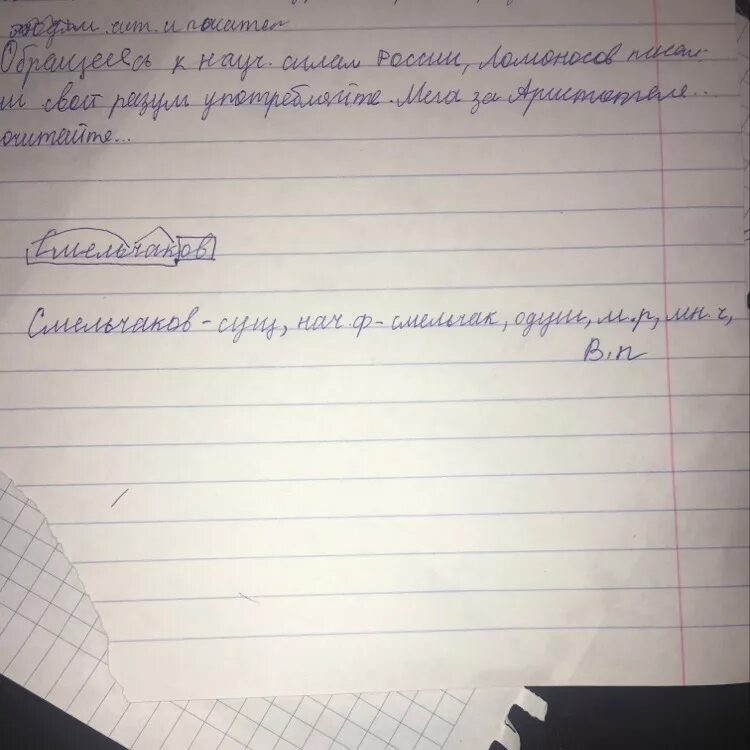 лит. и писател
Обращаясь к науч. силам России, Ломоносов писал-
и свой разум употребляйте. Меня за Аристотеля...
очитайте...
Смельчаков
Смельчаков - сущ, нач.ф - смельчак, одуш, м.р, мн.ч,
В.п